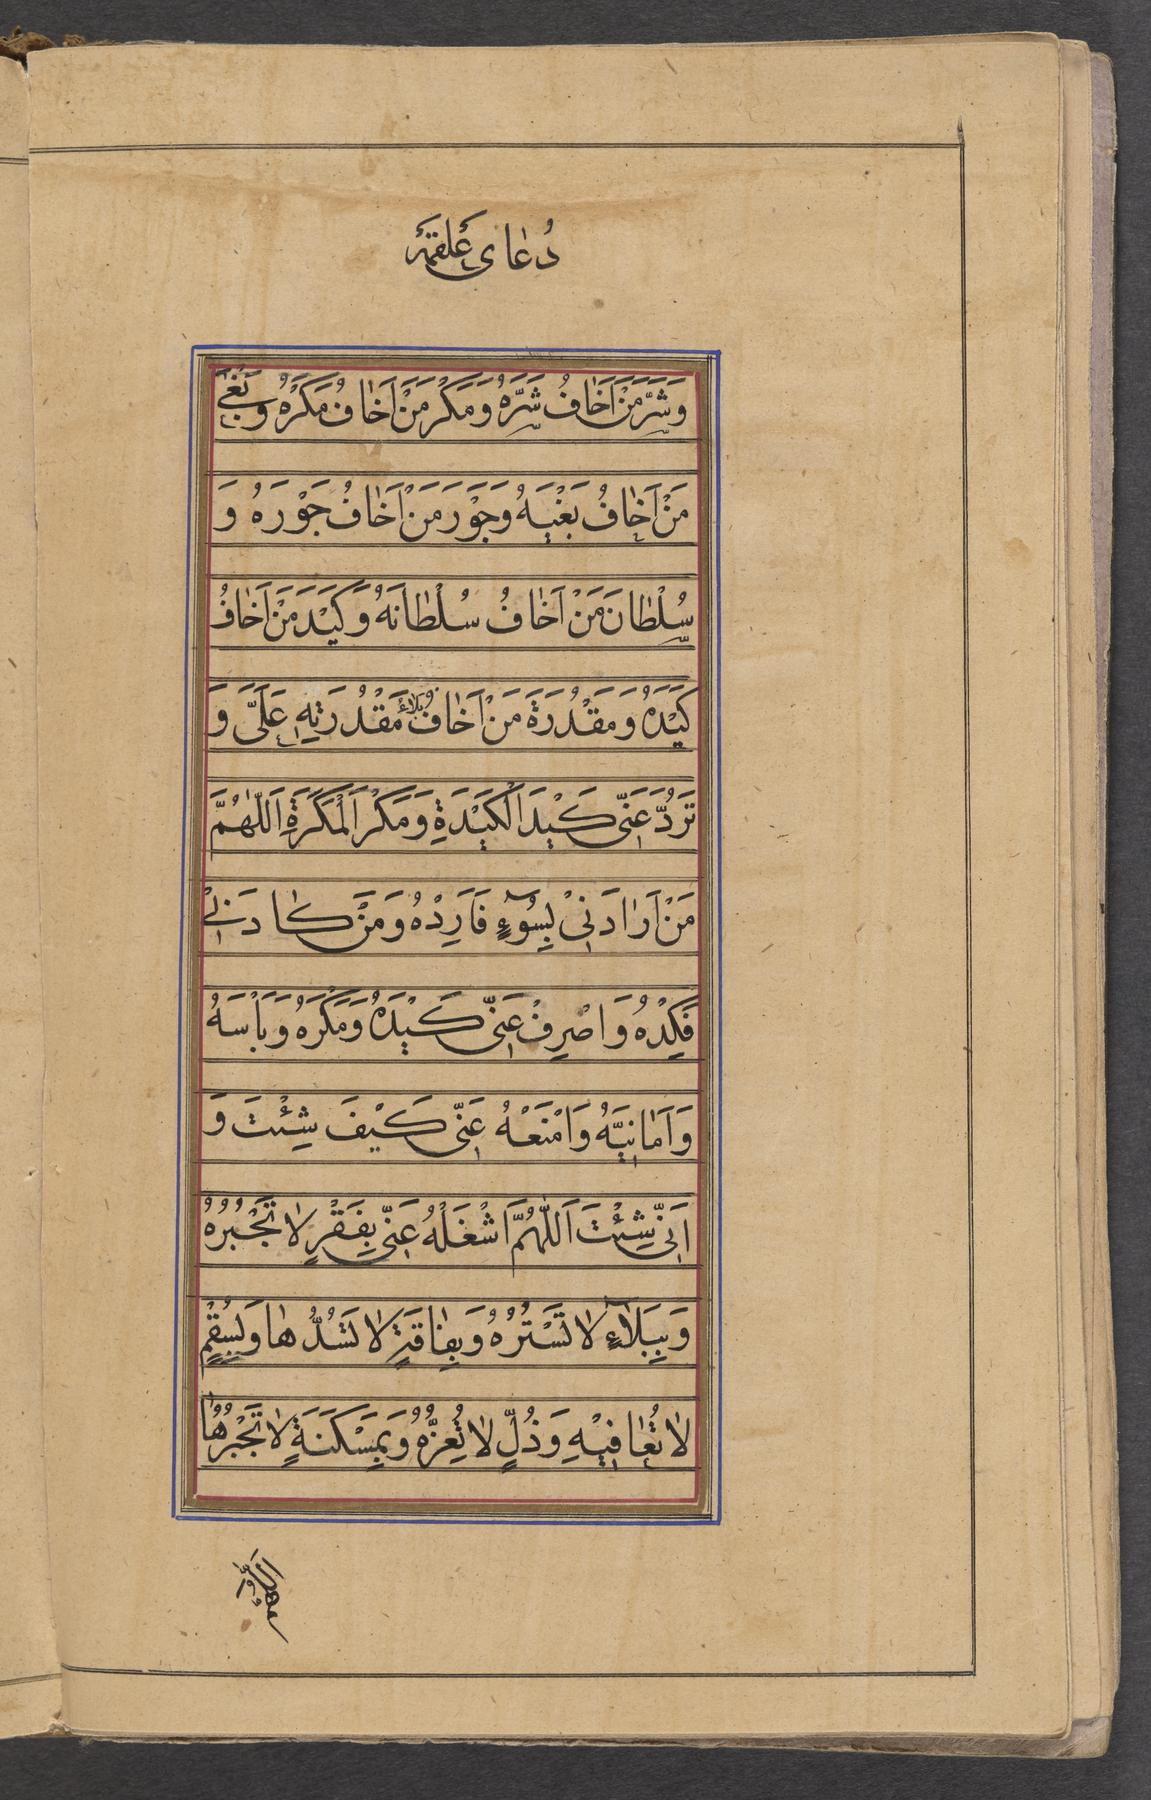 دُعَای عَلقمَه
وَشَرَّ مَنْ اَخَافُ شَرَّهُ وَمَكْرَ مَنْ اَخَافُ مَكْرَهُ وَبَغْیَ
مَنْ اَخَافُ بَغْيَهُ وَجَوْرَ مَنْ اَخَافُ جَوْرَهُ وَ
سُلْطَانَ مَنْ اَخَافُ سُلْطَانَهُ وَكَيْدَ مَنْ اَخَافُ
كَيْدَهُ وَمَقْدُرَةَ مَنْ اَخَافُ بَلاءَ مَقْدُرَتِهِ عَلَیَّ وَ
تَرُدَّ عَنّی كَيْدَ الْكَيَدَةِ وَمَكْرَ الْمَكَرَةِ اَللّٰهُمَّ
مَنْ اَرَادَنِیْ بِسُوۤءٍ فَاَرِدْهُ وَمَنْ كَادَنِیْ
فَكِدْهُ وَاصْرِفْ عَنّی كَيْدَهُ وَمَكْرَهُ وَبَاْسَهُ
وَاَمَانِيَّهُ وَامْنَعْهُ عَنّی كَيْفَ شِئْتَ وَ
اَنّی شِئْتَ اَللّٰهُمَّ اشْغَلْهُ عَنّی بِفَقْرٍ لَا تَجْبُرُهُ
وَبِبَلَاۤءٍ لَا تَسْتُرُهُ وَبِفَاقَةٍ لَا تَسُدُّهَا وَبِسُقْمٍ
لَا تُعَافِيْهِ وَذُلٍّ لَا تُعِزُّهُ وَبِمَسْكَنَةٍ لَا تَجْبُرُهَا